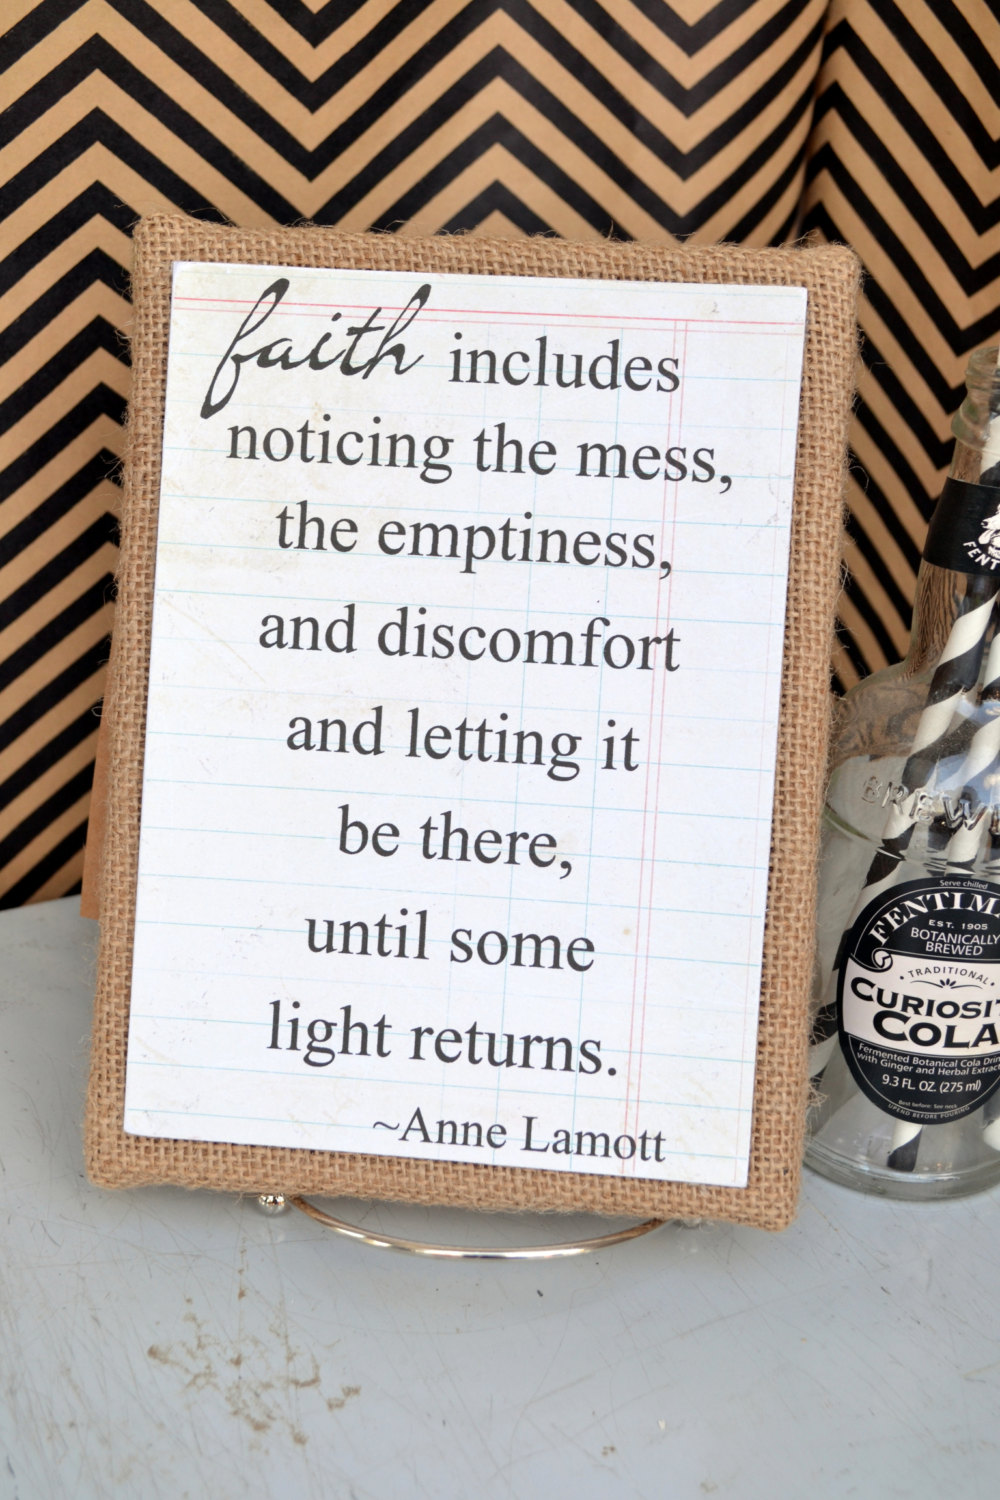 faith includes
noticing the mess,
the emptiness,
and discomfort
and letting it
be there,
until some
light returns.
~Anne Lamott
FENT
BREW
Serve chilled
FENTIM
EST. 1905
BOTANICALLY
BREWED
TRADITIONAL
CURIOSIT
COLA
Fermented Botanical Cola Drin
with Ginger and Herbal Extract
9.3 FL. OZ. (275 ml)
Best before: See neck
UPEND BEFORE POURING